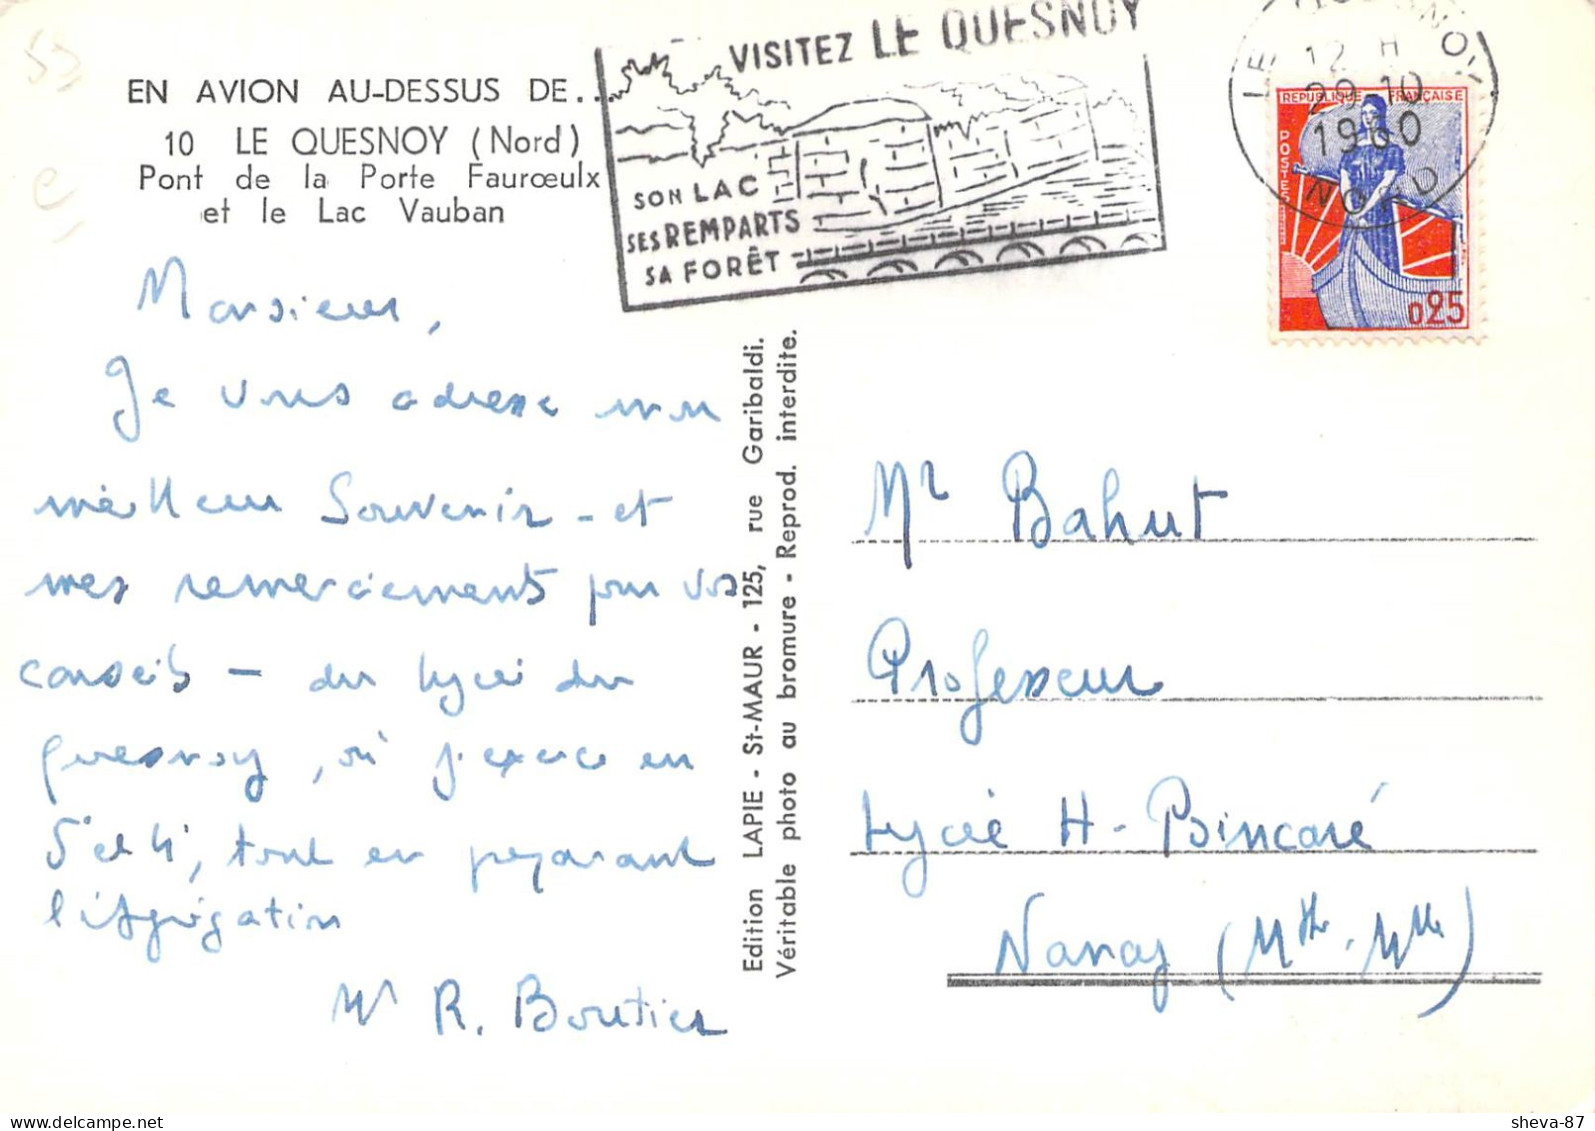 EN AVION AU-DESSUS DE...
10 LE QUESNOY (Nord)
Pont de la Porte Faurœulx
et le Lac Vauban
VISITEZ LE QUESNOY
SON LAC
SES REMPARTS
SA FORÊT
12 H
29-10
1960
NORD
REPUBLIQUE FRANÇAISE
POSTES
0,25
Monsieur,
Je vous adresse mon
meilleur Souvenir - et
mes remerciements pour vos
conseils - du lycée du
Quesnoy, où j'exerce en
5è et 4è, tout en préparant
l'Agrégation
R. Boutier
Edition LAPIE - St-MAUR - 125, rue Garibaldi.
Véritable photo au bromure - Reprod. interdite.
Mr Bahut
Professeur
Lycée H. Poincaré
Nancy (Mthe-Mlle)
sheva-87